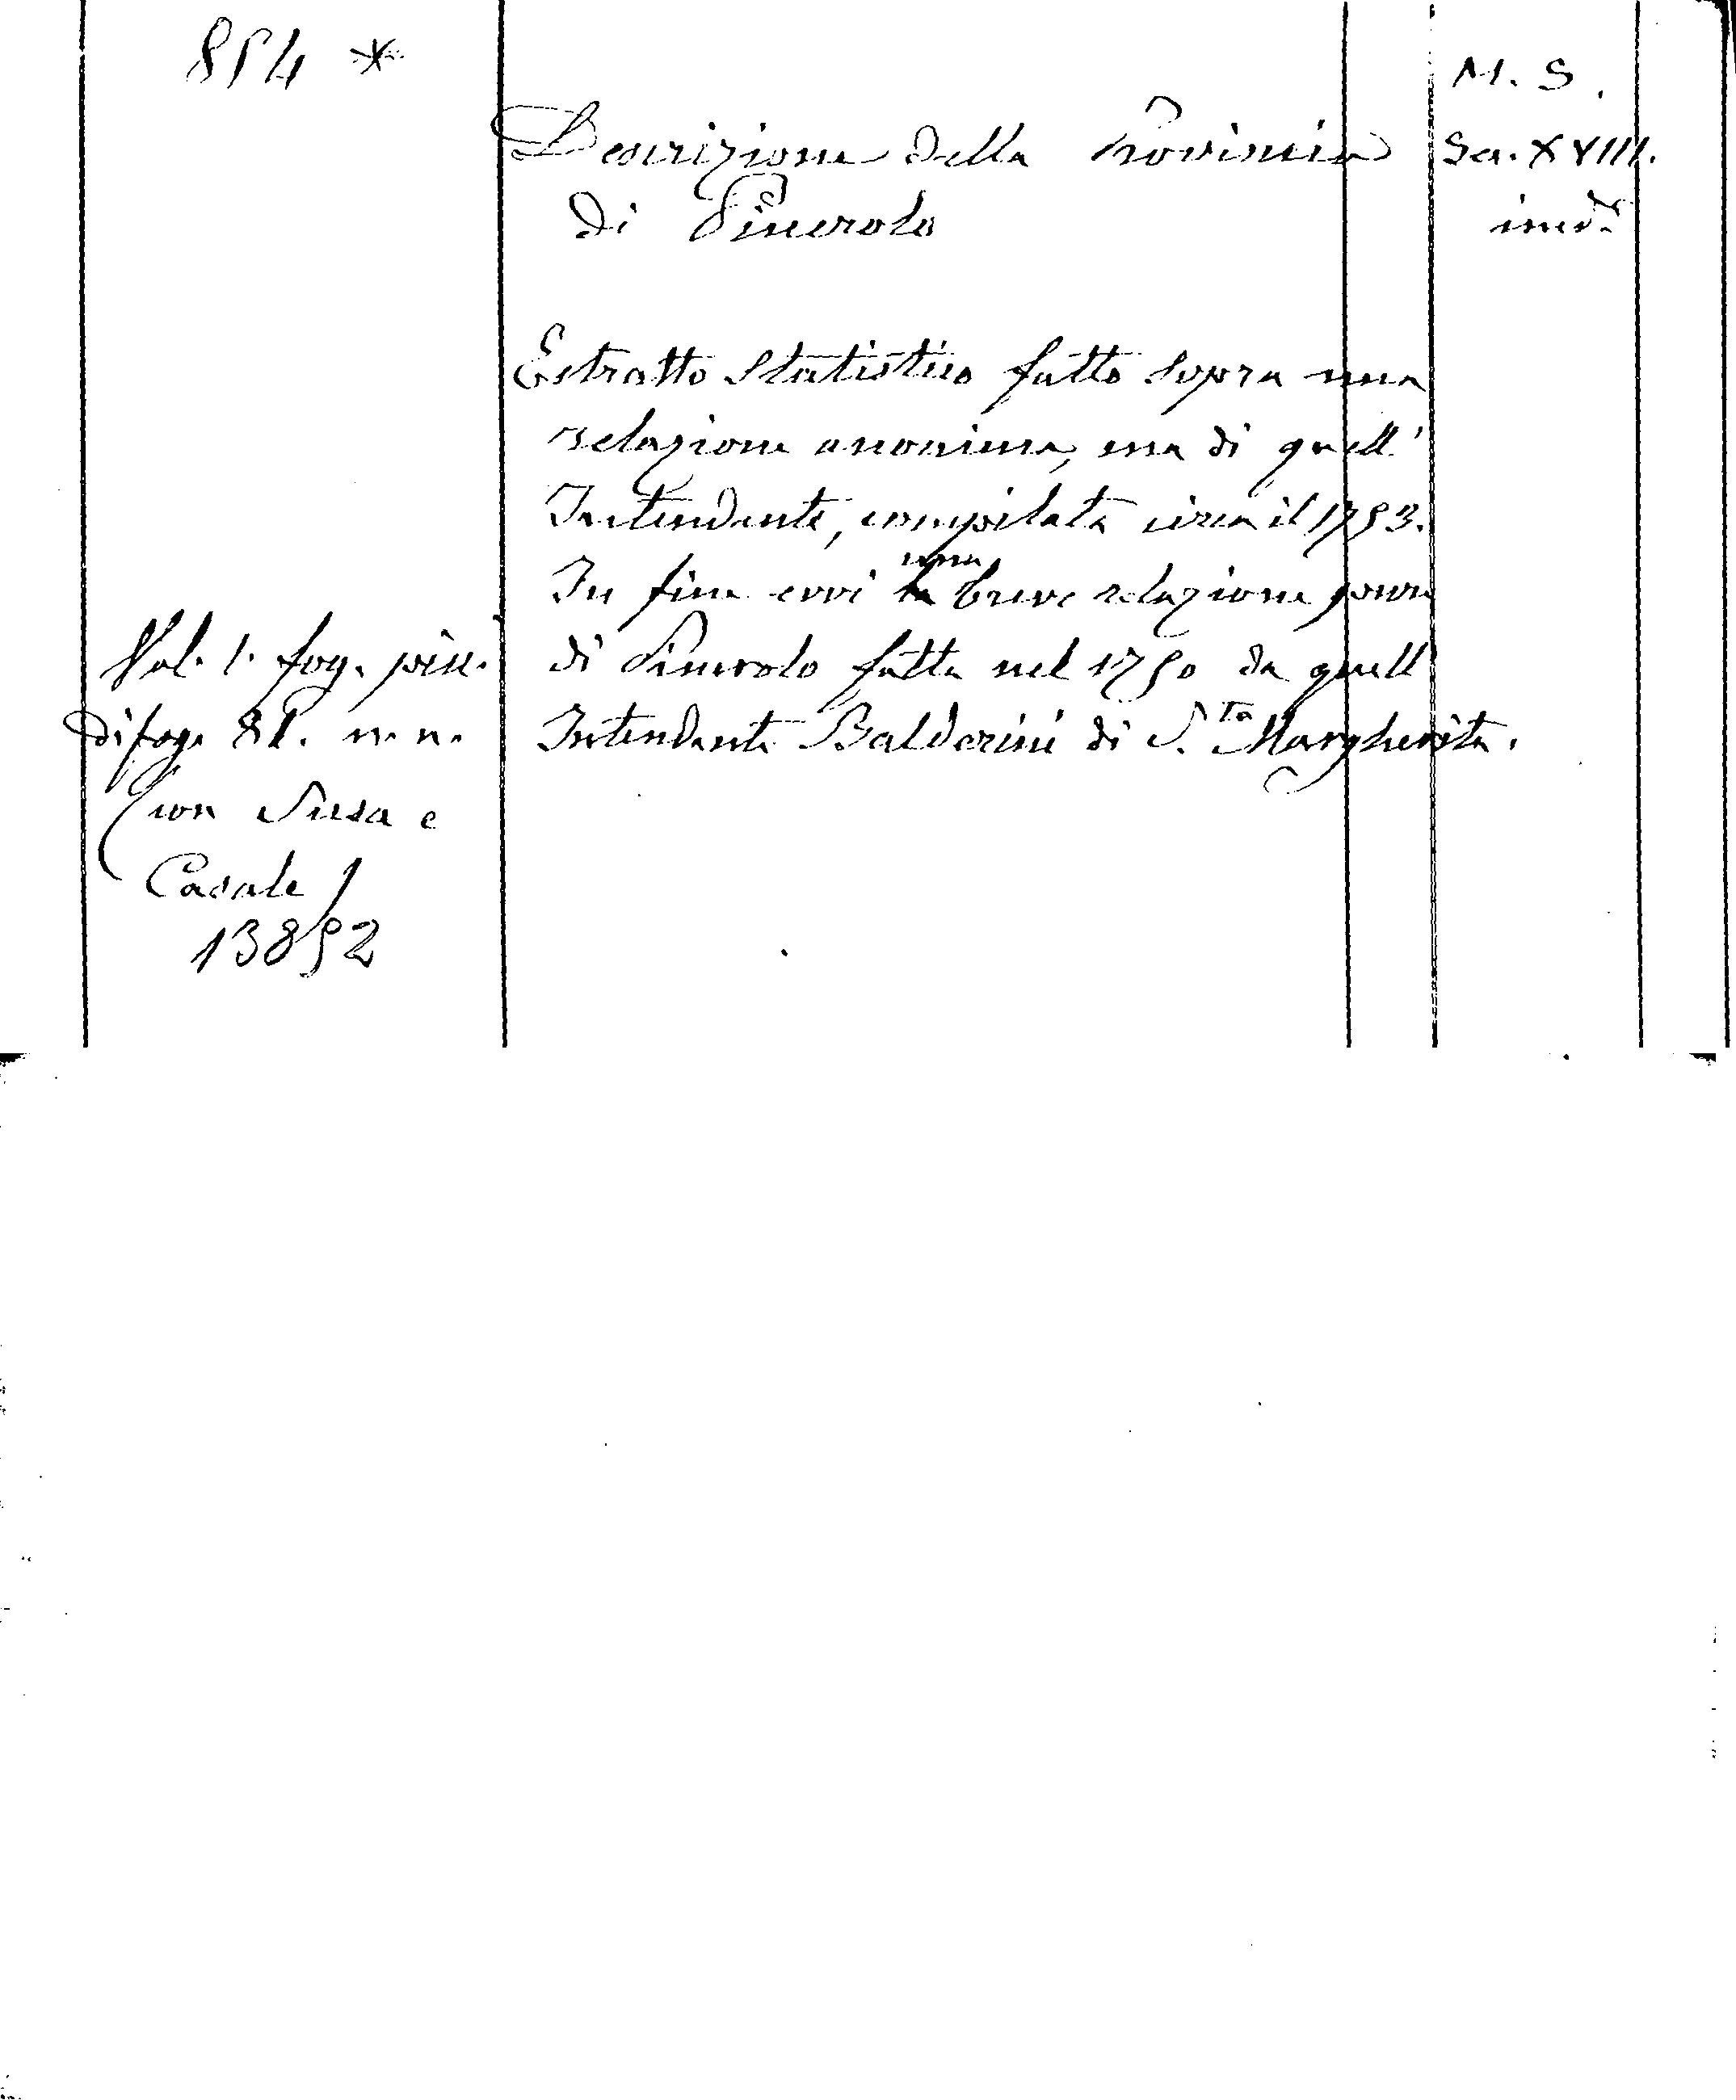 854 *
M. S.
Descrizione della Provincia
Sec. XVIII.
di Pinerolo
ined.
Estratto Statistico fatto sopra una
relazione anonima, ma di quell'
Intendente, compilata circa il 1753.
una
In fine evvi breve relazione pure
Vol. 1. fog. picc.
di Pinerolo fatta nel 1750 da quell
di fog. 81. n. n.
Intendente Balderini di S.ta Margherita.
(con Susa e
Casale)
13852